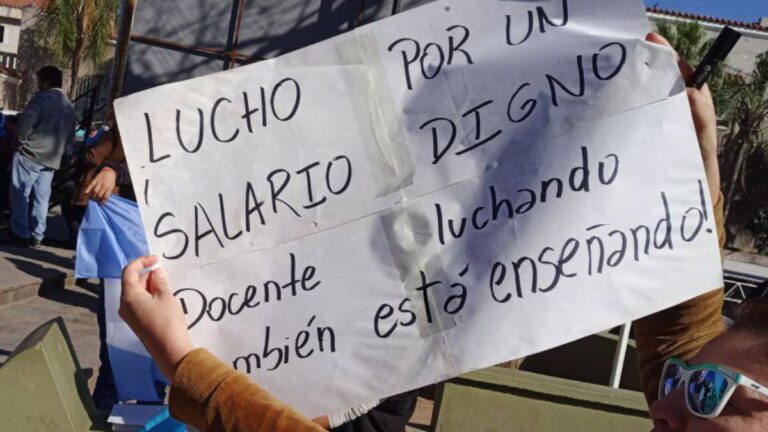 LUCHO POR UN
SALARIO DIGNO
Docente luchando
también está enseñando!